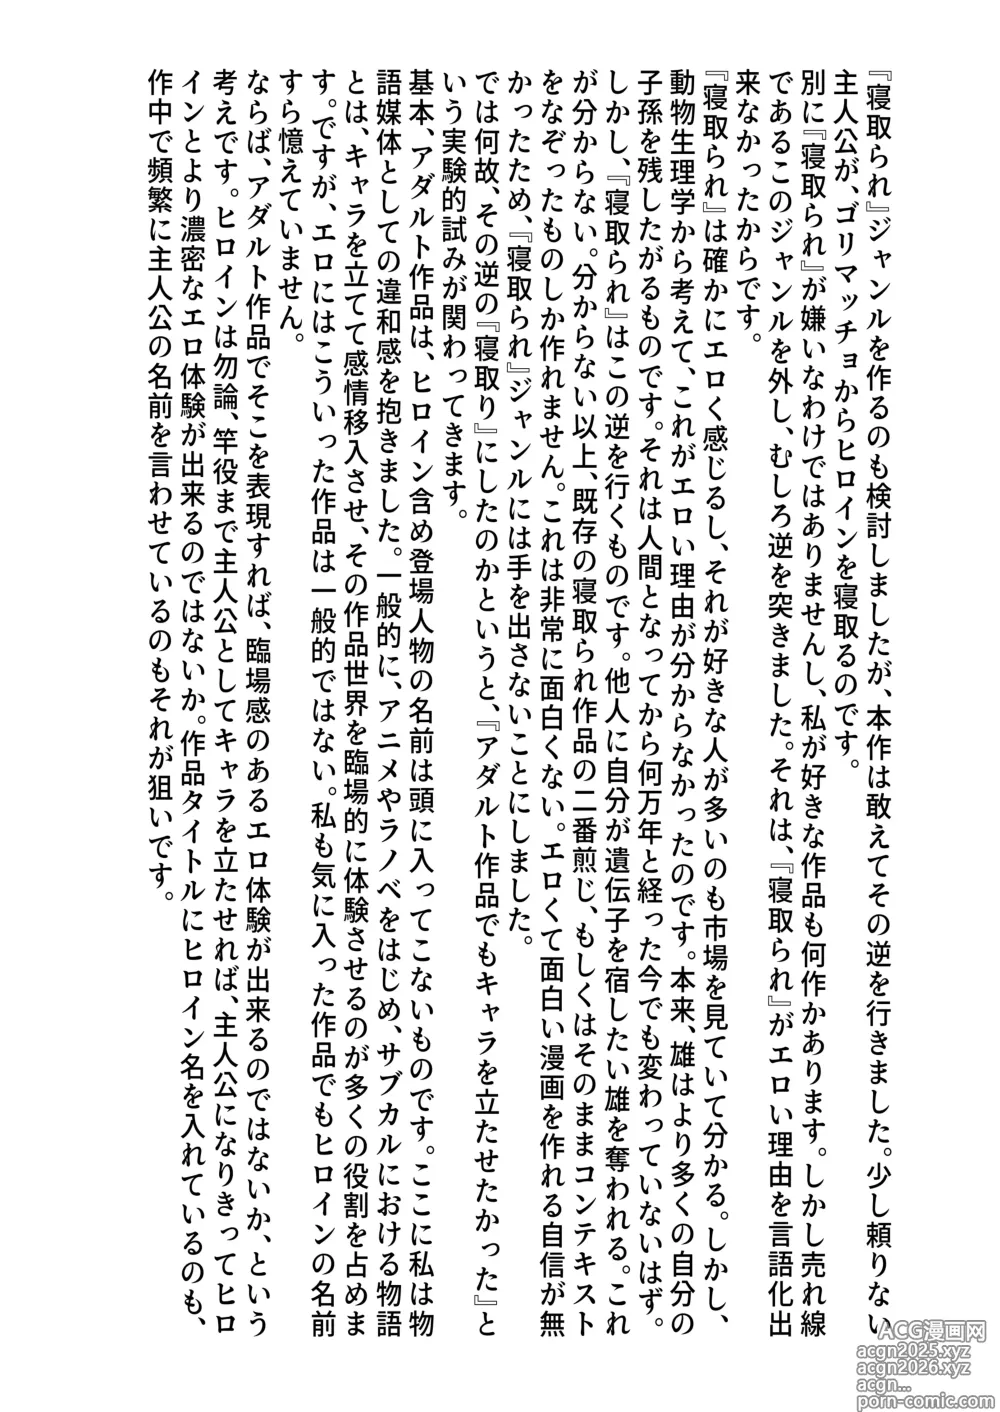 『寝取られ』ジャンルを作るのも検討しましたが、本作は敢えてその逆を行きました。少し頼りない
主人公が、ゴリマッチョからヒロインを寝取るのです。
別に『寝取られ』が嫌いなわけではありませんし、私が好きな作品も何作かあります。しかし売れ線
であるこのジャンルを外し、むしろ逆を突きました。それは、『寝取られ』がエロい理由を言語化出
来なかったからです。
『寝取られ』は確かにエロく感じるし、それが好きな人が多いのも市場を見ていて分かる。しかし、
動物生理学から考えて、これがエロい理由が分からなかったのです。本来、雄はより多くの自分の
子孫を残したがるものです。それは人間となってから何万年と経った今でも変わっていないはず。
しかし、『寝取られ』はこの逆を行くものです。他人に自分が遺伝子を宿したい雄を奪われる。これ
が分からない。分からない以上、既存の寝取られ作品の二番煎じ、もしくはそのままコンテキスト
をなぞったものしか作れません。これは非常に面白くない。エロくて面白い漫画を作れる自信が無
かったため、『寝取られ』ジャンルには手を出さないことにしました。
では何故、その逆の『寝取り』にしたのかというと、『アダルト作品でもキャラを立たせたかった』と
いう実験的試みが関わってきます。
基本、アダルト作品は、ヒロイン含め登場人物の名前は頭に入ってこないものです。ここに私は物
語媒体としての違和感を抱きました。一般的に、アニメやラノベをはじめ、サブカルにおける物語
とは、キャラを立てて感情移入させ、その作品世界を臨場的に体験させるのが多くの役割を占めま
す。ですが、エロにはこういった作品は一般的ではない。私も気に入った作品でもヒロインの名前
すら憶えていません。
ならば、アダルト作品でそこを表現すれば、臨場感のあるエロ体験が出来るのではないか、という
考えです。ヒロインは勿論、竿役まで主人公としてキャラを立たせれば、主人公になりきってヒロ
インとより濃密なエロ体験が出来るのではないか。作品タイトルにヒロイン名を入れているのも、
作中で頻繁に主人公の名前を言わせているのもそれが狙いです。
ACG漫画网
acgn2025.xyz
acgn2026.xyz
acgn...
porn-comic.com